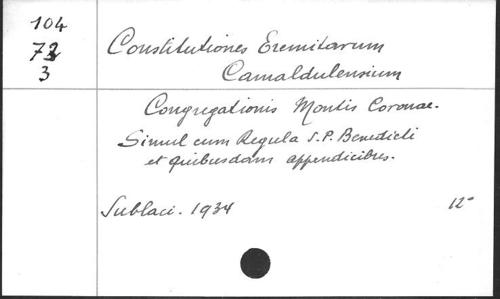 104
73
3
Constitutiones Eremitarum
Camaldulensium
Congregationis Montis Coronae.
Simul cum Regula S.P. Benedicti
et quibusdam appendicibus.
Sublaci. 1934
12°